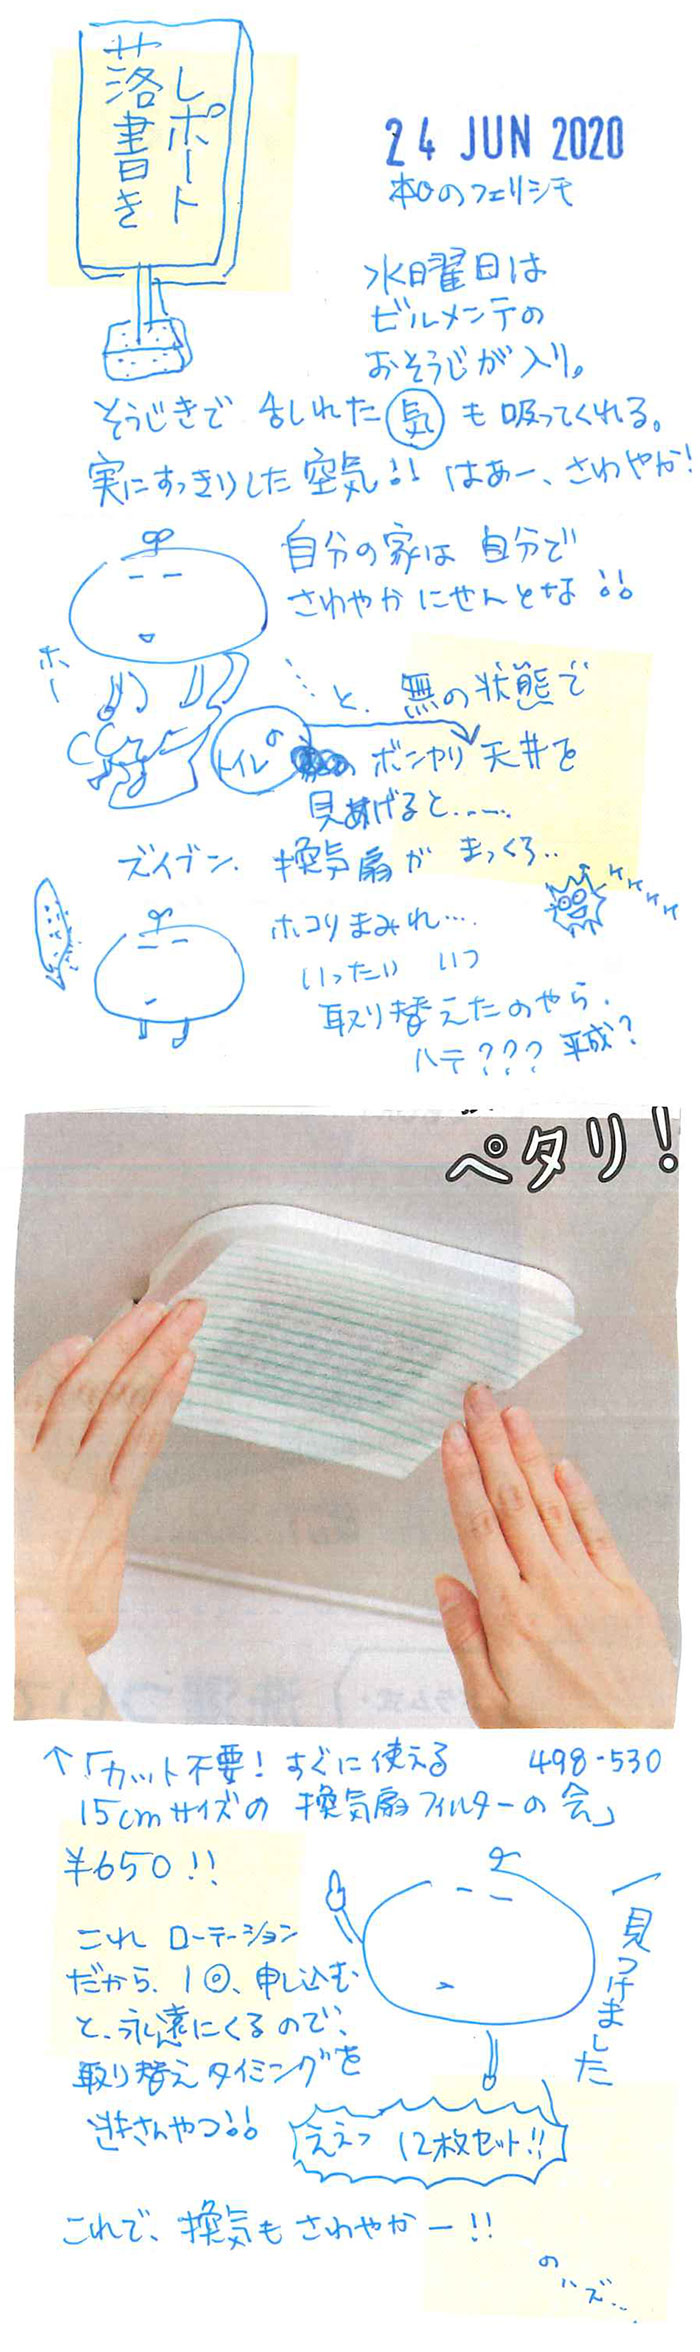 落書き
レポート
24 JUN 2020
本日のフェリシモ
水曜日は
ビルメンテの
おそうじが入り。
そうじきで 乱れた 気 も 吸ってくれる。
実にすっきりした 空気!! はあー、さわやか!
自分の家は 自分で
さわやか にせんとな !!
ホー
…と、無の状態で
トイレの
ボンヤリ 天井を
見あげると……
ズイブン、換気扇が まっくろ..
ホコリまみれ…
いったい いつ
取り替えたのやら、
ハテ??? 平成?
ペタリ!
↑「カット不要! すぐに使える 498-530
15cmサイズの 換気扇フィルターの 会」
¥650!!
これ ローテーション
だから、1回、申し込む
と、永遠にくるので、
取り替えタイミングを
逃さんやつ!!
見つけました
ええっ 12枚セット!!
これで、換気も さわやかー!!
のハズ…